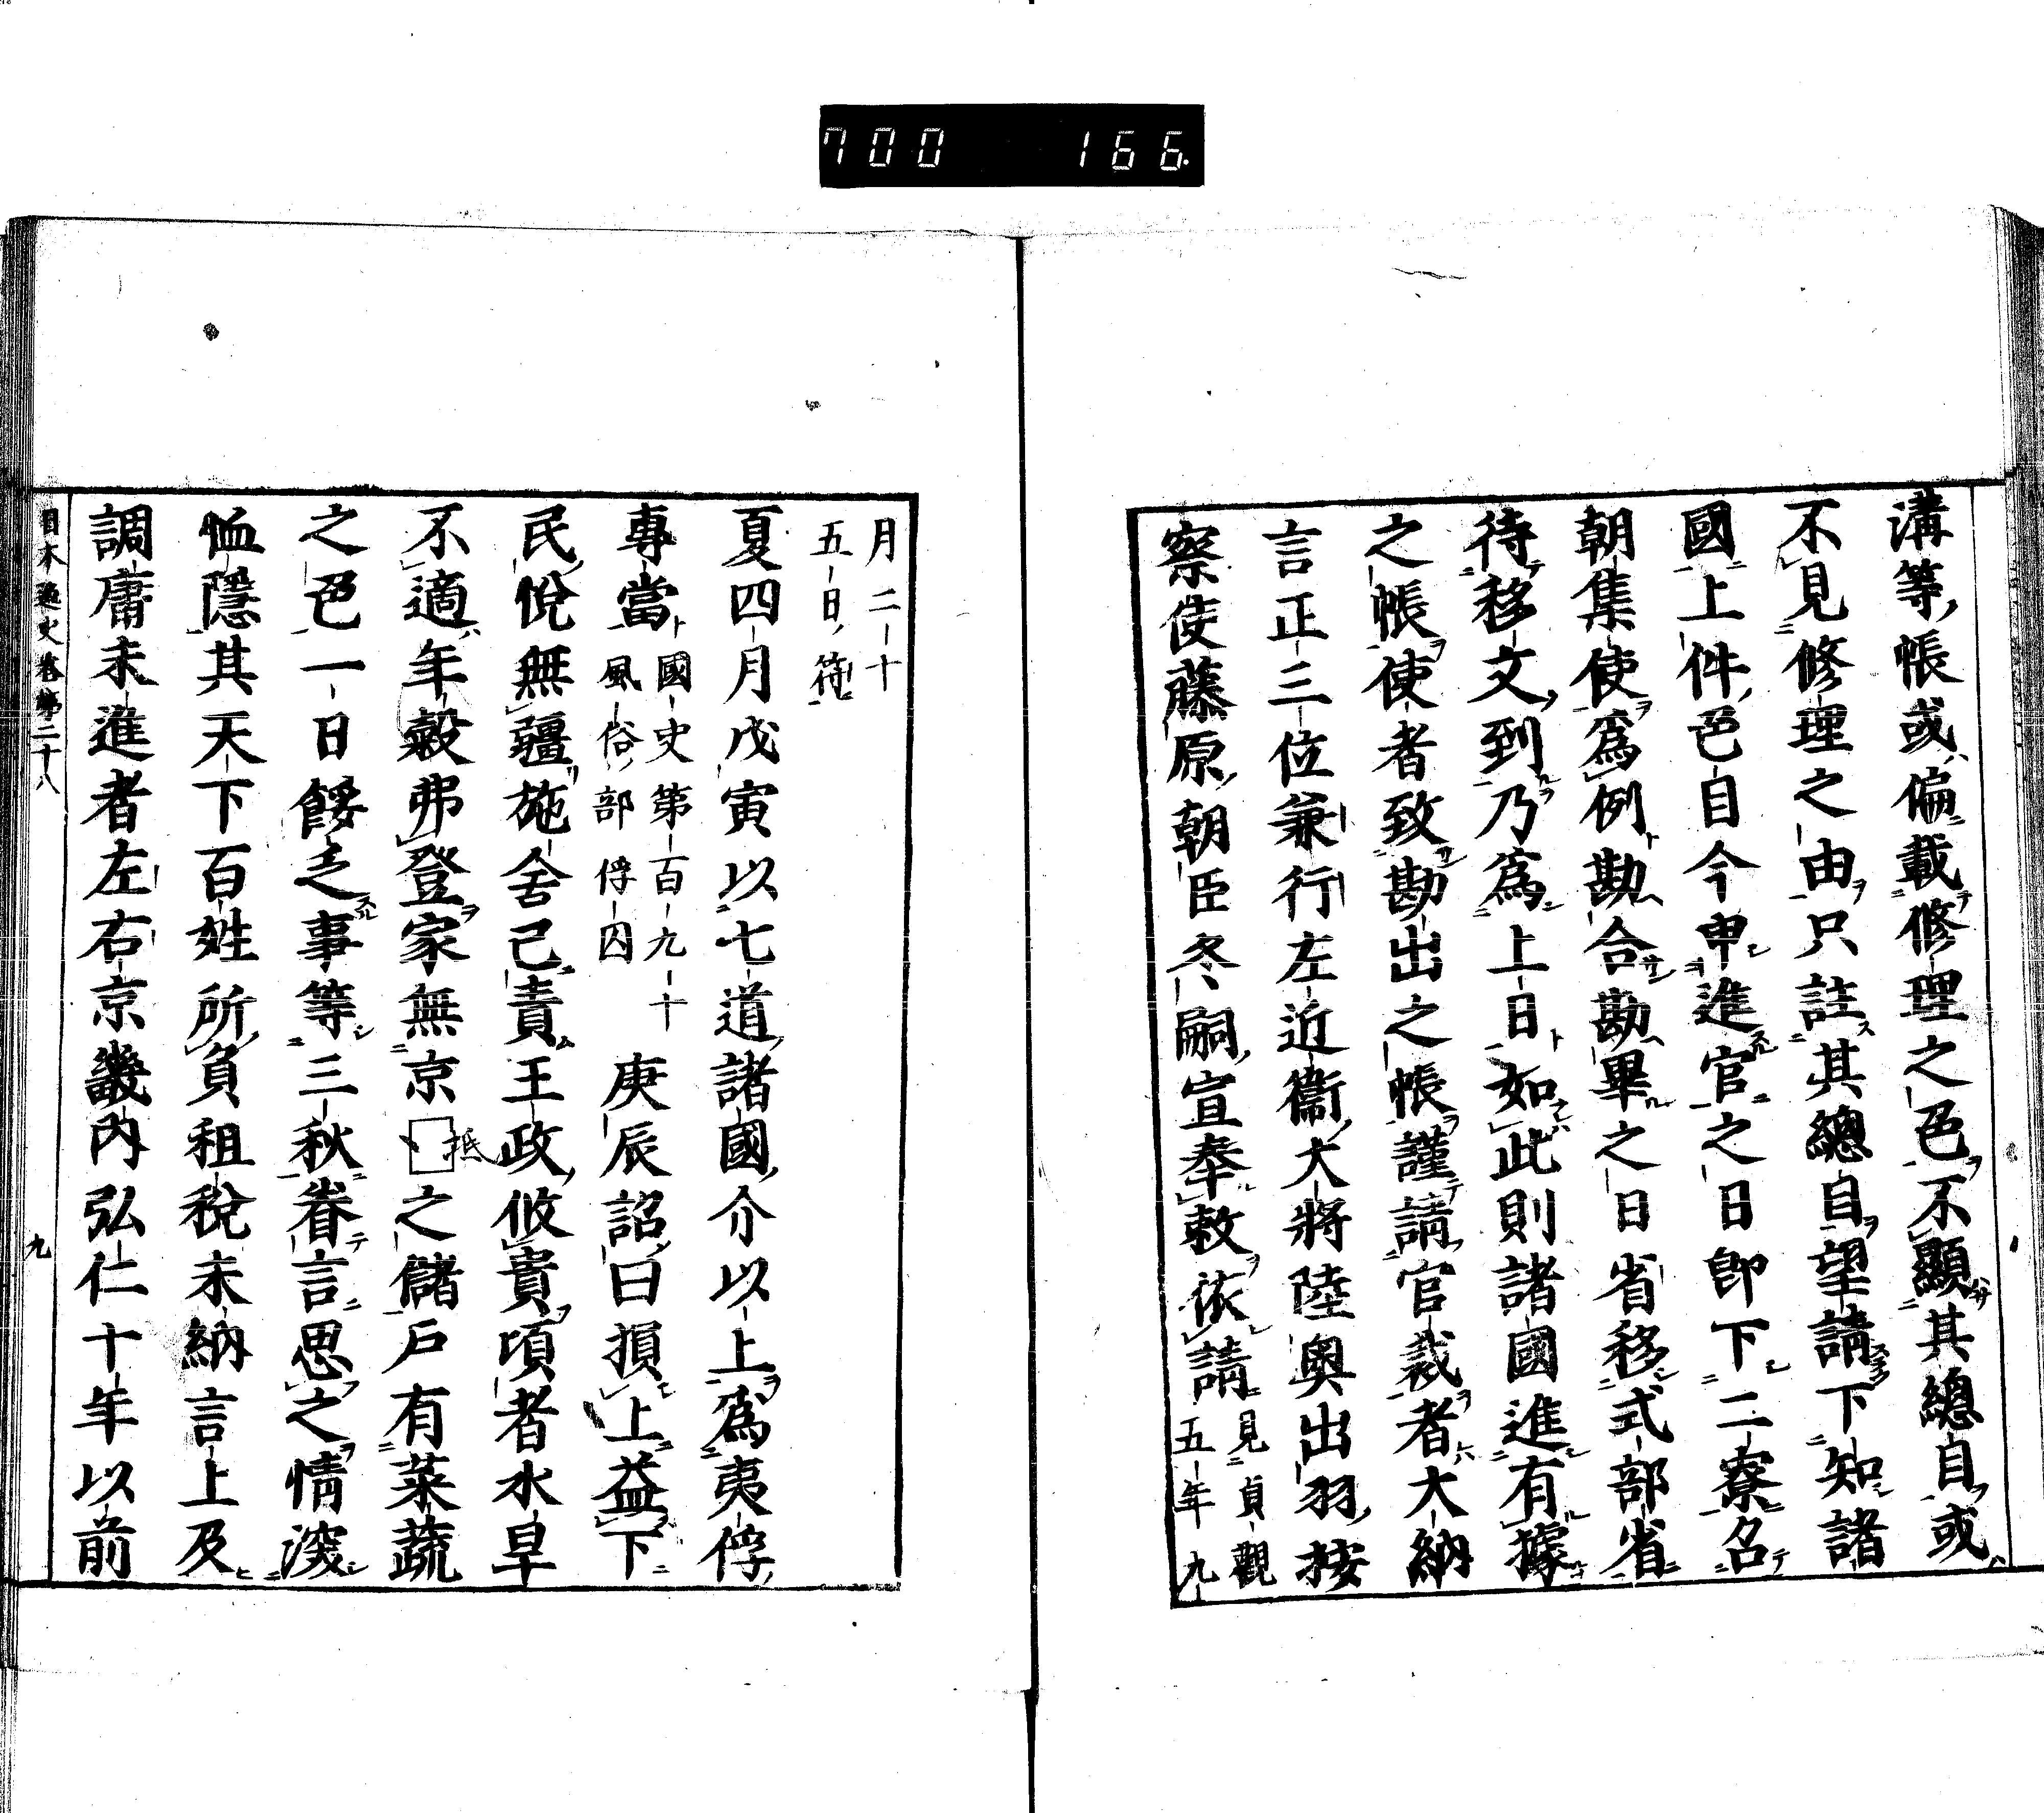 700 166
溝等帳或偏載修理之色不顯其總自或
不見修理之由只註其總自望請下知諸
國上件色自今申進官之日卽下二寮名
朝集使爲例勘合勘畢之日省移式部省
待移文到乃爲上日如此則諸國進有據
之帳使者致勘出之帳謹請官裁者大納
言正三位兼行左近衞大將陸奧出羽按
察使藤原朝臣冬嗣宣奉敕依請見貞觀
五年九
月二十
五日符
夏四月戊寅以七道諸國介以上爲夷俘
專當國史第百九十
風俗部俘囚
庚辰詔曰損上益下
民悅無疆施舍己責王政攸貴頃者水旱
不適年穀弗登家無京抵之儲戶有菜蔬
之色一日餒乏事等三秋眷言思之情深
恤隱其天下百姓所負租稅未納言上及
調庸未進者左右京畿內弘仁十年以前
日本逸史卷第二十八
九